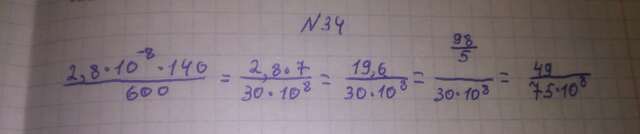 N34
2,8·10⁻⁸·140/600 = 2,8·7/30·10⁸ = 19,6/30·10⁸ = 98/5/30·10⁸ = 49/75·10⁸